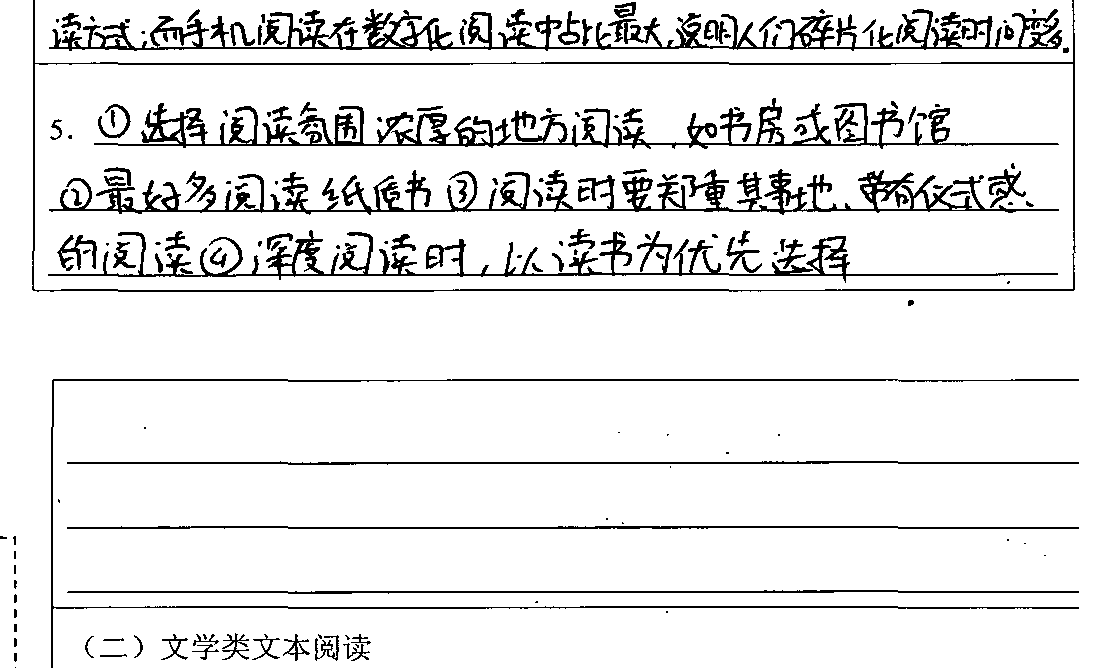 读方式；而手机阅读在数字化阅读中占比最大，说明人们碎片化阅读时间变多.
5. ①选择阅读氛围浓厚的地方阅读，如书房或图书馆
②最好多阅读纸质书③阅读时要郑重其事地、带有仪式感
的阅读④深度阅读时，以读书为优先选择
（二）文学类文本阅读